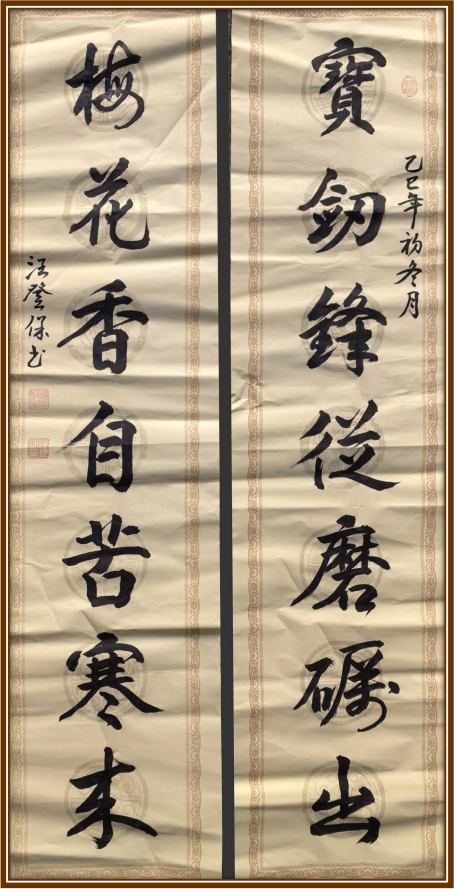 乙巳年初冬月
寶劒鋒從磨礪出
梅花香自苦寒来
汪登保书